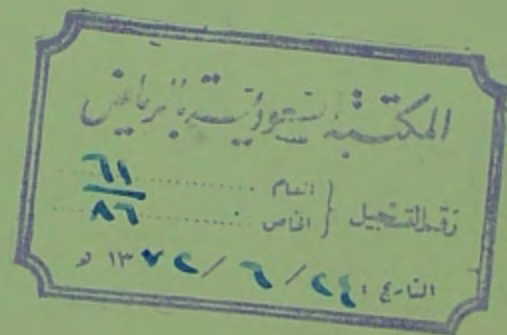 المكتبة السعودية بالرياض
رقم التسجيل { العام ٦١
الخاص ٨٦
التاريخ : ٢٤ / ٦ / ١٣٧٢ هـ